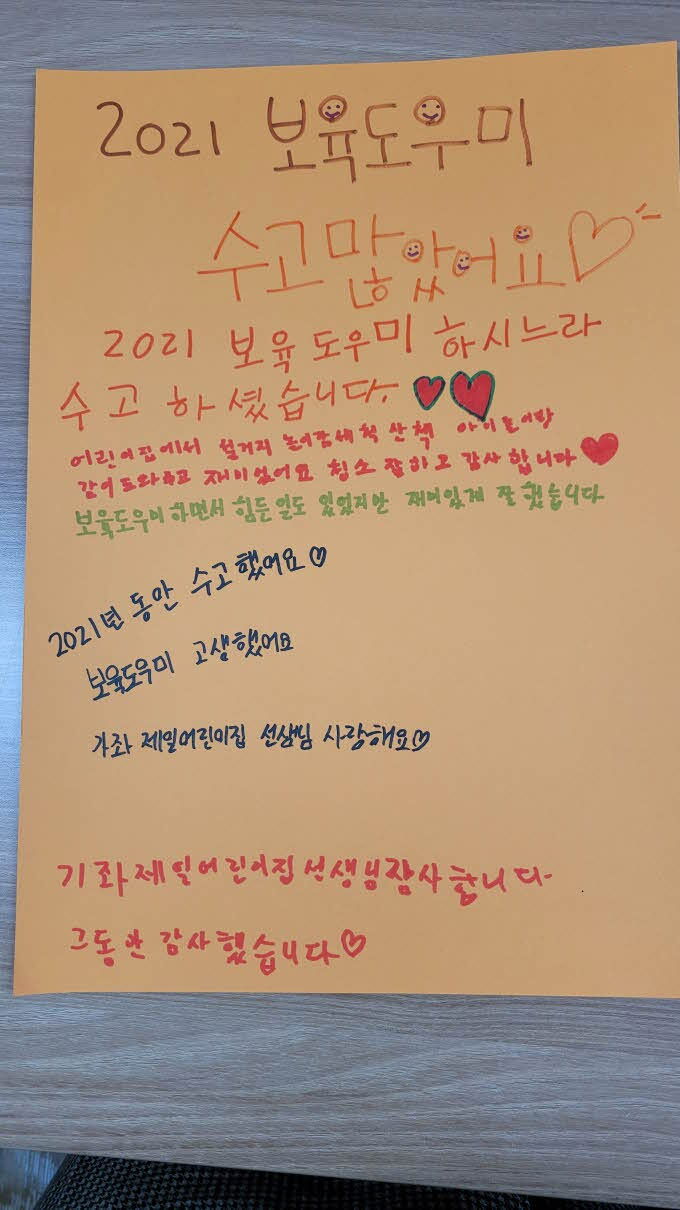 2021 보육도우미
수고많았어요
2021 보육도우미 하시느라
수고 하셨습니다.
어린이집에서 설거지 놀이감세척 산책 아이들이랑
같이 도와주고 재미있어요 청소 잘하고 감사합니다
보육도우미 하면서 힘든일도 있었지만 재미있게 잘 했습니다
2021년 동안 수고했어요
보육도우미 고생했어요
가좌 제일어린이집 선생님 사랑해요
가좌제일어린이집선생님감사합니다.
그동안 감사했습니다